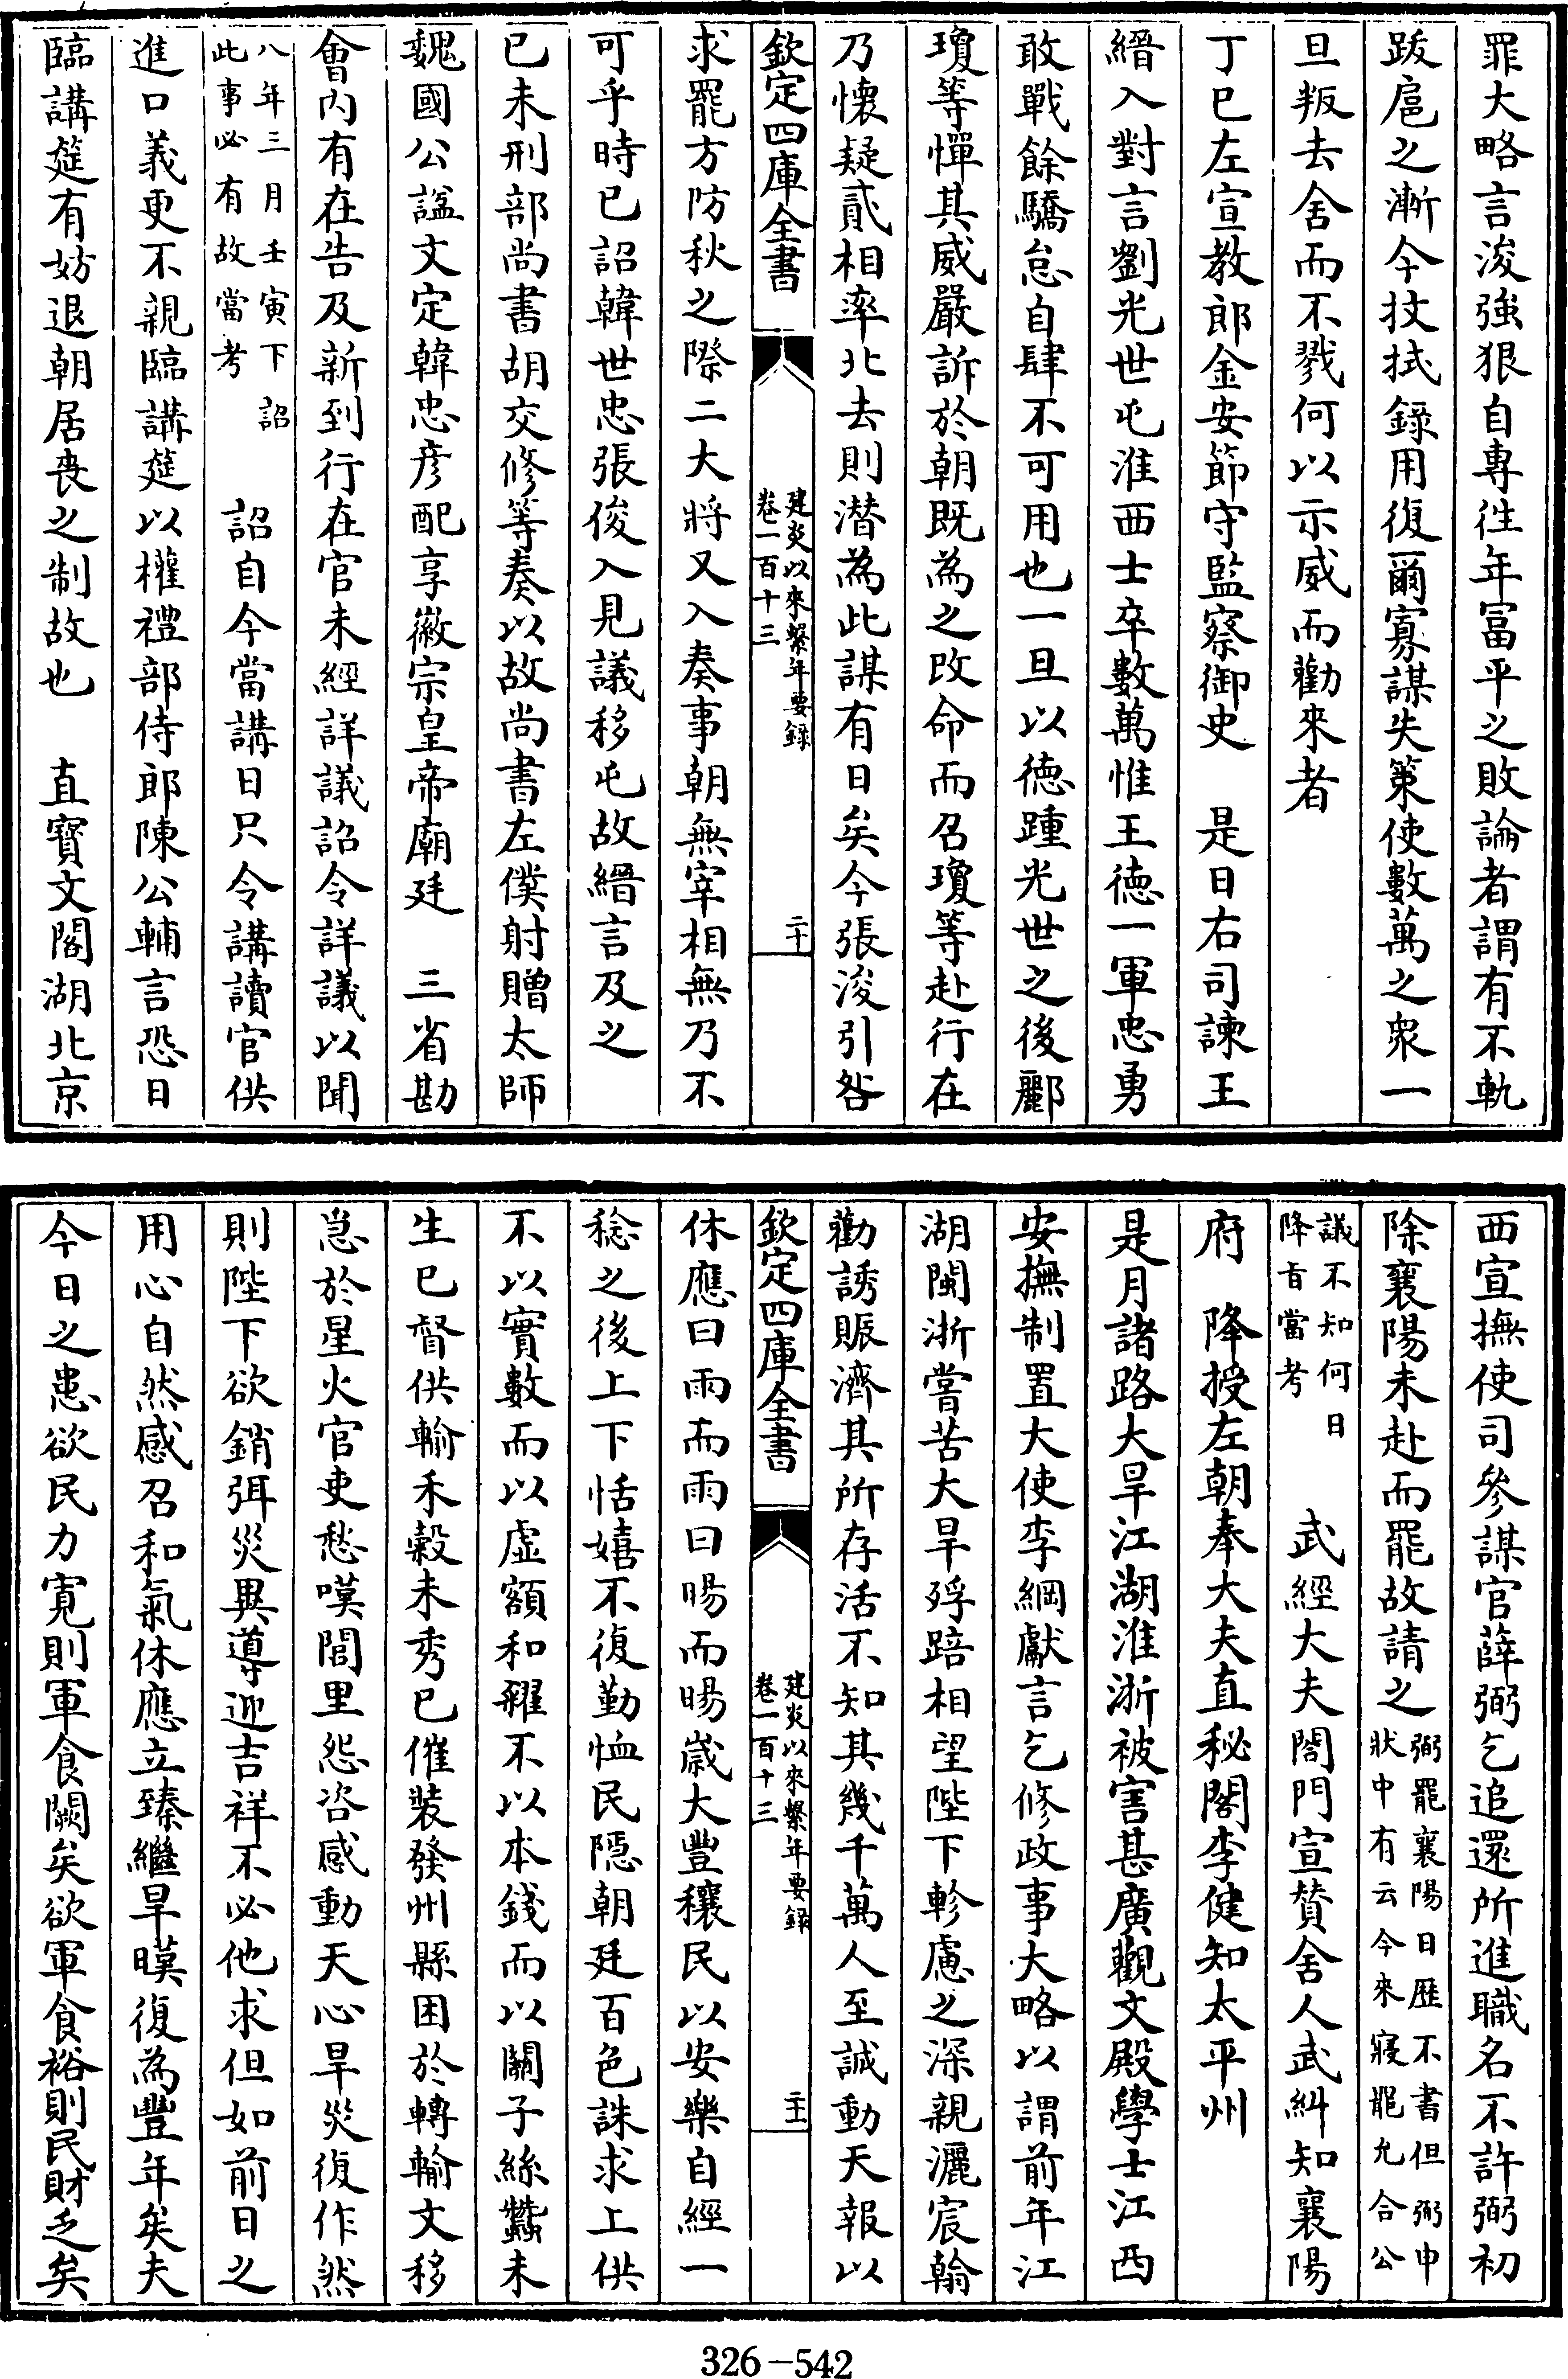 罪大略言浚強狠自專徃年富平之敗論者謂有不軌
跋扈之漸今抆拭録用復爾寡謀失策使數萬之衆一
旦叛去舍而不戮何以示威而勸來者
丁巳左宣教郎金安節守監察御史 是日右司諫王
縉入對言劉光世屯淮西士卒數萬惟王德一軍忠勇
敢戰餘驕怠自肆不可用也一旦以德踵光世之後酈
瓊等憚其威嚴訴於朝既為之改命而召瓊等赴行在
乃懷疑貳相率北去則潛為此謀有日矣今張浚引咎
欽定四庫全書
建炎以來繫年要録
卷一百十三
二十
求罷方防秋之際二大將又入奏事朝無宰相無乃不
可乎時已詔韓世忠張俊入見議移屯故縉言及之
已未刑部尚書胡交修等奏以故尚書左僕射贈太師
魏國公諡文定韓忠彦配享徽宗皇帝廟廷 三省勘
會内有在告及新到行在官未經詳議詔令詳議以聞
八年三月壬寅下詔
此事必有故當考
詔自今當講日只令講讀官供
進口義更不親臨講筵以權禮部侍郎陳公輔言恐日
臨講筵有妨退朝居喪之制故也 直寶文閣湖北京
西宣撫使司參謀官薛弼乞追還所進職名不許弼初
除襄陽未赴而罷故請之
弼罷襄陽日歴不書但弼申
狀中有云今來寢罷允合公
議不知何日
降旨當考
武經大夫閤門宣贊舍人武糾知襄陽
府 降授左朝奉大夫直秘閣李健知太平州
是月諸路大旱江湖淮浙被害甚廣觀文殿學士江西
安撫制置大使李綱獻言乞修政事大略以謂前年江
湖閩浙嘗苦大旱殍踣相望陛下軫慮之深親灑宸翰
勸誘賑濟其所存活不知其幾千萬人至誠動天報以
欽定四庫全書
建炎以來繫年要録
卷一百十三
二十一
休應曰雨而雨曰暘而暘歳大豐穰民以安樂自經一
稔之後上下恬嬉不復勤恤民隱朝廷百色誅求上供
不以實數而以虛額和糴不以本錢而以關子絲蠶未
生已督供輸禾榖未秀已催裝發州縣困於轉輸文移
急於星火官吏愁嘆閭里怨咨感動天心旱災復作然
則陛下欲銷弭災異導迎吉祥不必他求但如前日之
用心自然感召和氣休應立臻繼旱暵復為豐年矣夫
今日之患欲民力寛則軍食闕矣欲軍食裕則民財乏矣
326-542